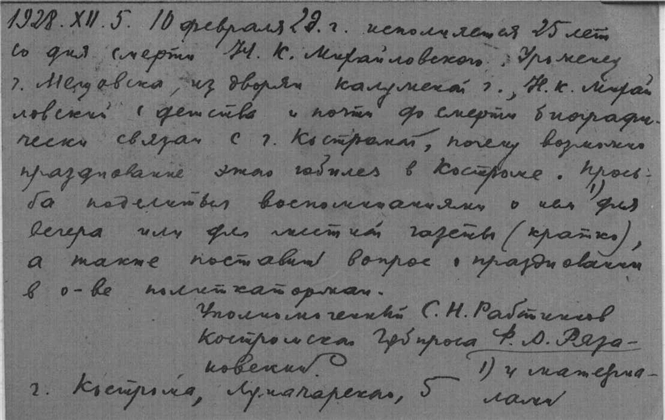 1928.XII.5. 10 февраля 29. г. исполняется 25 лет
со дня смерти Н. К. Михайловского. Уроженец
г. Мещовска, из дворян калужской г., Н. К. Михай
ловский с детства и почти до смерти биографи-
чески связан с г. Костромой, почему возможно
празднование этого юбилея в Костроме. Прось-
ба поделиться воспоминаниями о нем 1) для
вечера или для местной газеты (кратко),
а также поставить вопрос о праздновании
в о-ве политкаторжан.
Уполномоченный С. Н. Работников
Костромского Губпроса Ф. А. Ряза-
новский
1) и материа-
г. Кострома, Луначарского, 5
лами